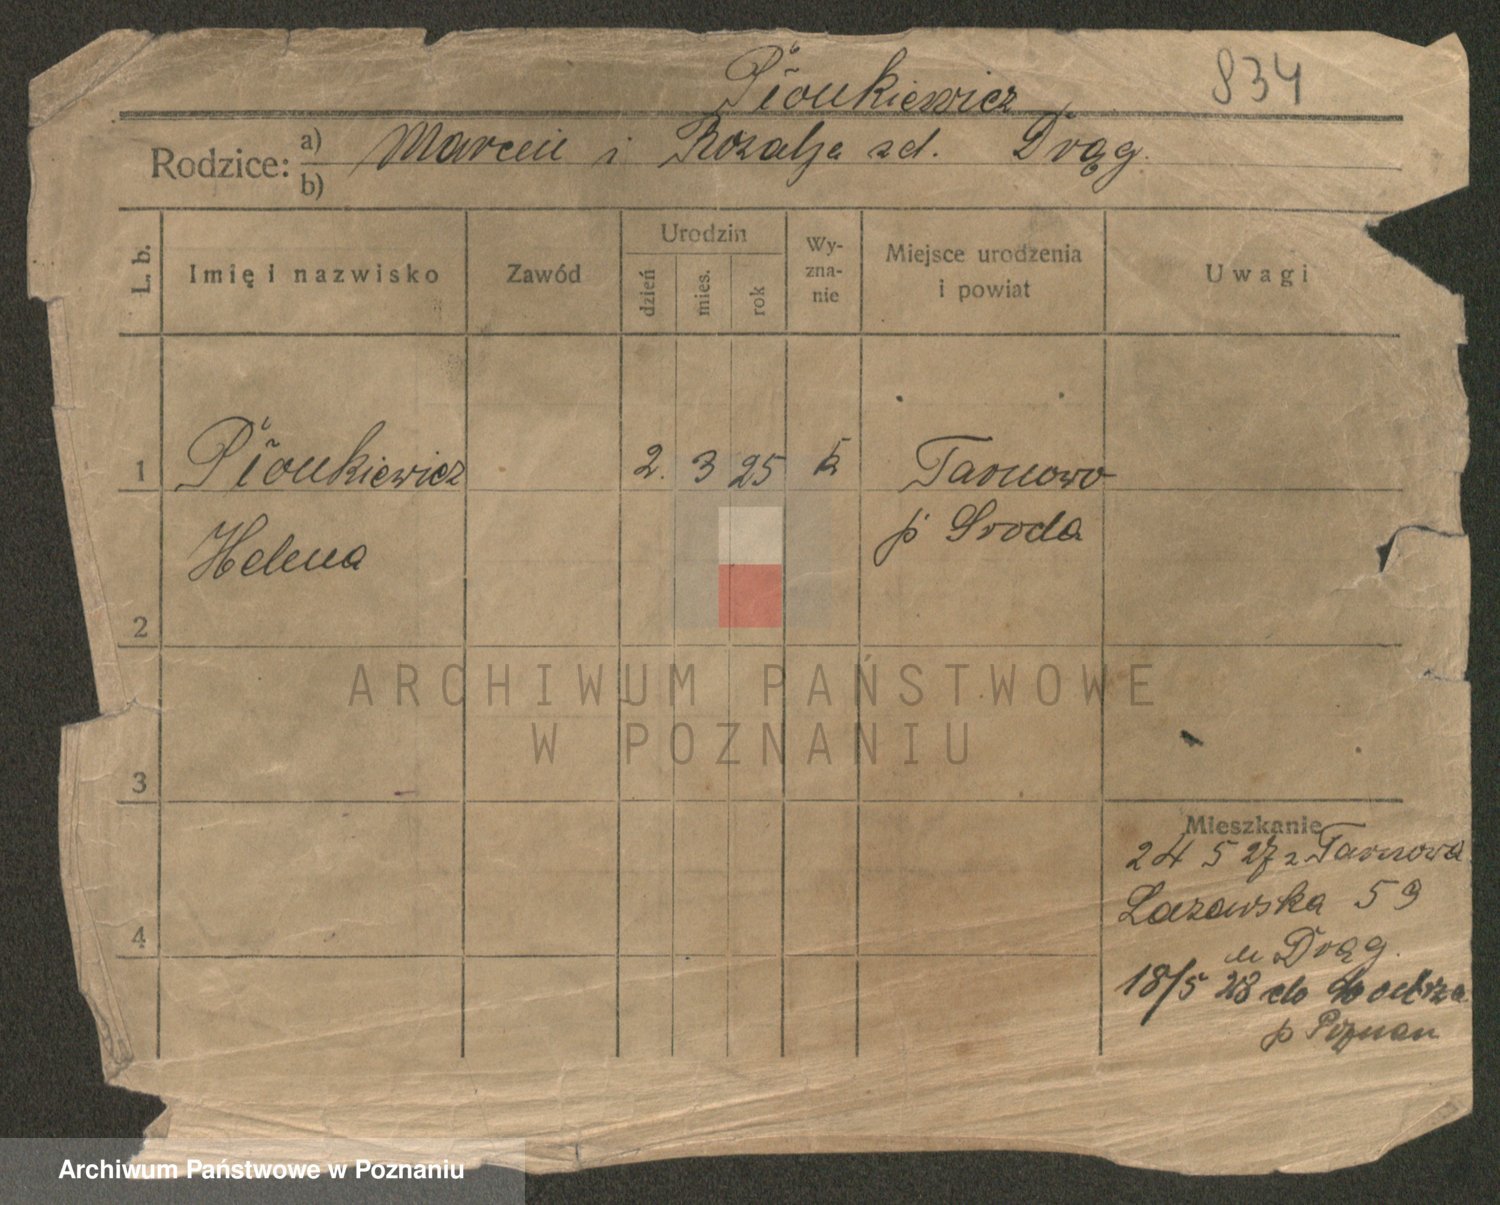 Płonkiewicz 834
Rodzice: a) Marcin i Rozalja zd. Drąg.
b)
L. b. Imię i nazwisko Zawód Urodzin dzień mies. rok Wy-zna-nie Miejsce urodzenia i powiat Uwagi
1 Płonkiewicz 2. 3 25 k Tarnowo
Helena p Sroda
2
ARCHIWUM PAŃSTWOWE
W POZNANIU
3
Mieszkanie
24 5 27 z Tarnowa
Łazarska 53
4
u Drąg.
18/5 28 do
p Poznan
Archiwum Państwowe w Poznaniu